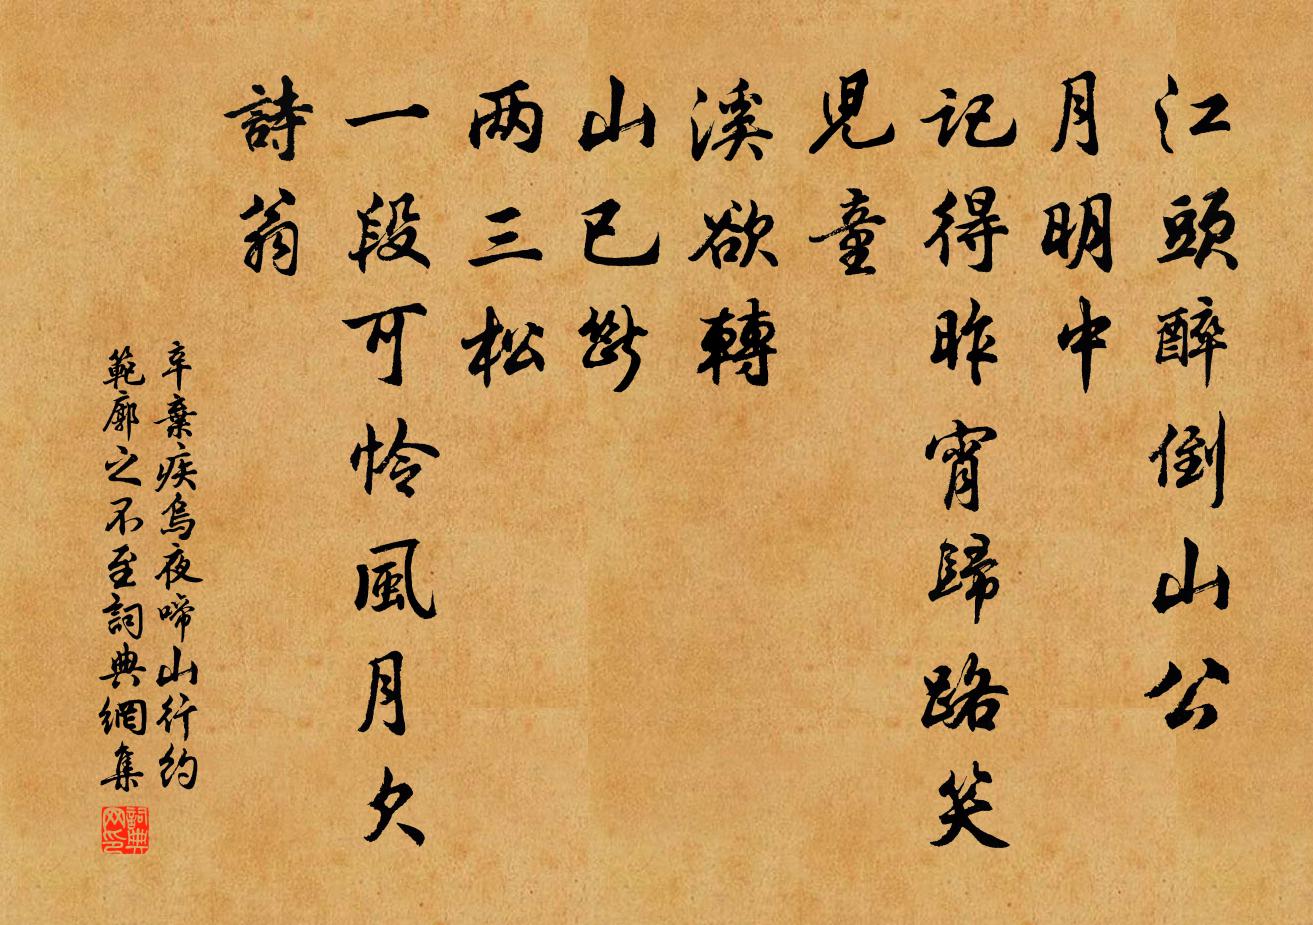 江頭醉倒山公
月明中
記得昨宵歸路笑
兒童
溪欲轉
山已斷
两三松
一段可怜風月欠
詩翁
辛棄疾烏夜啼山行约
範廓之不至詞典網集
詞典
网印